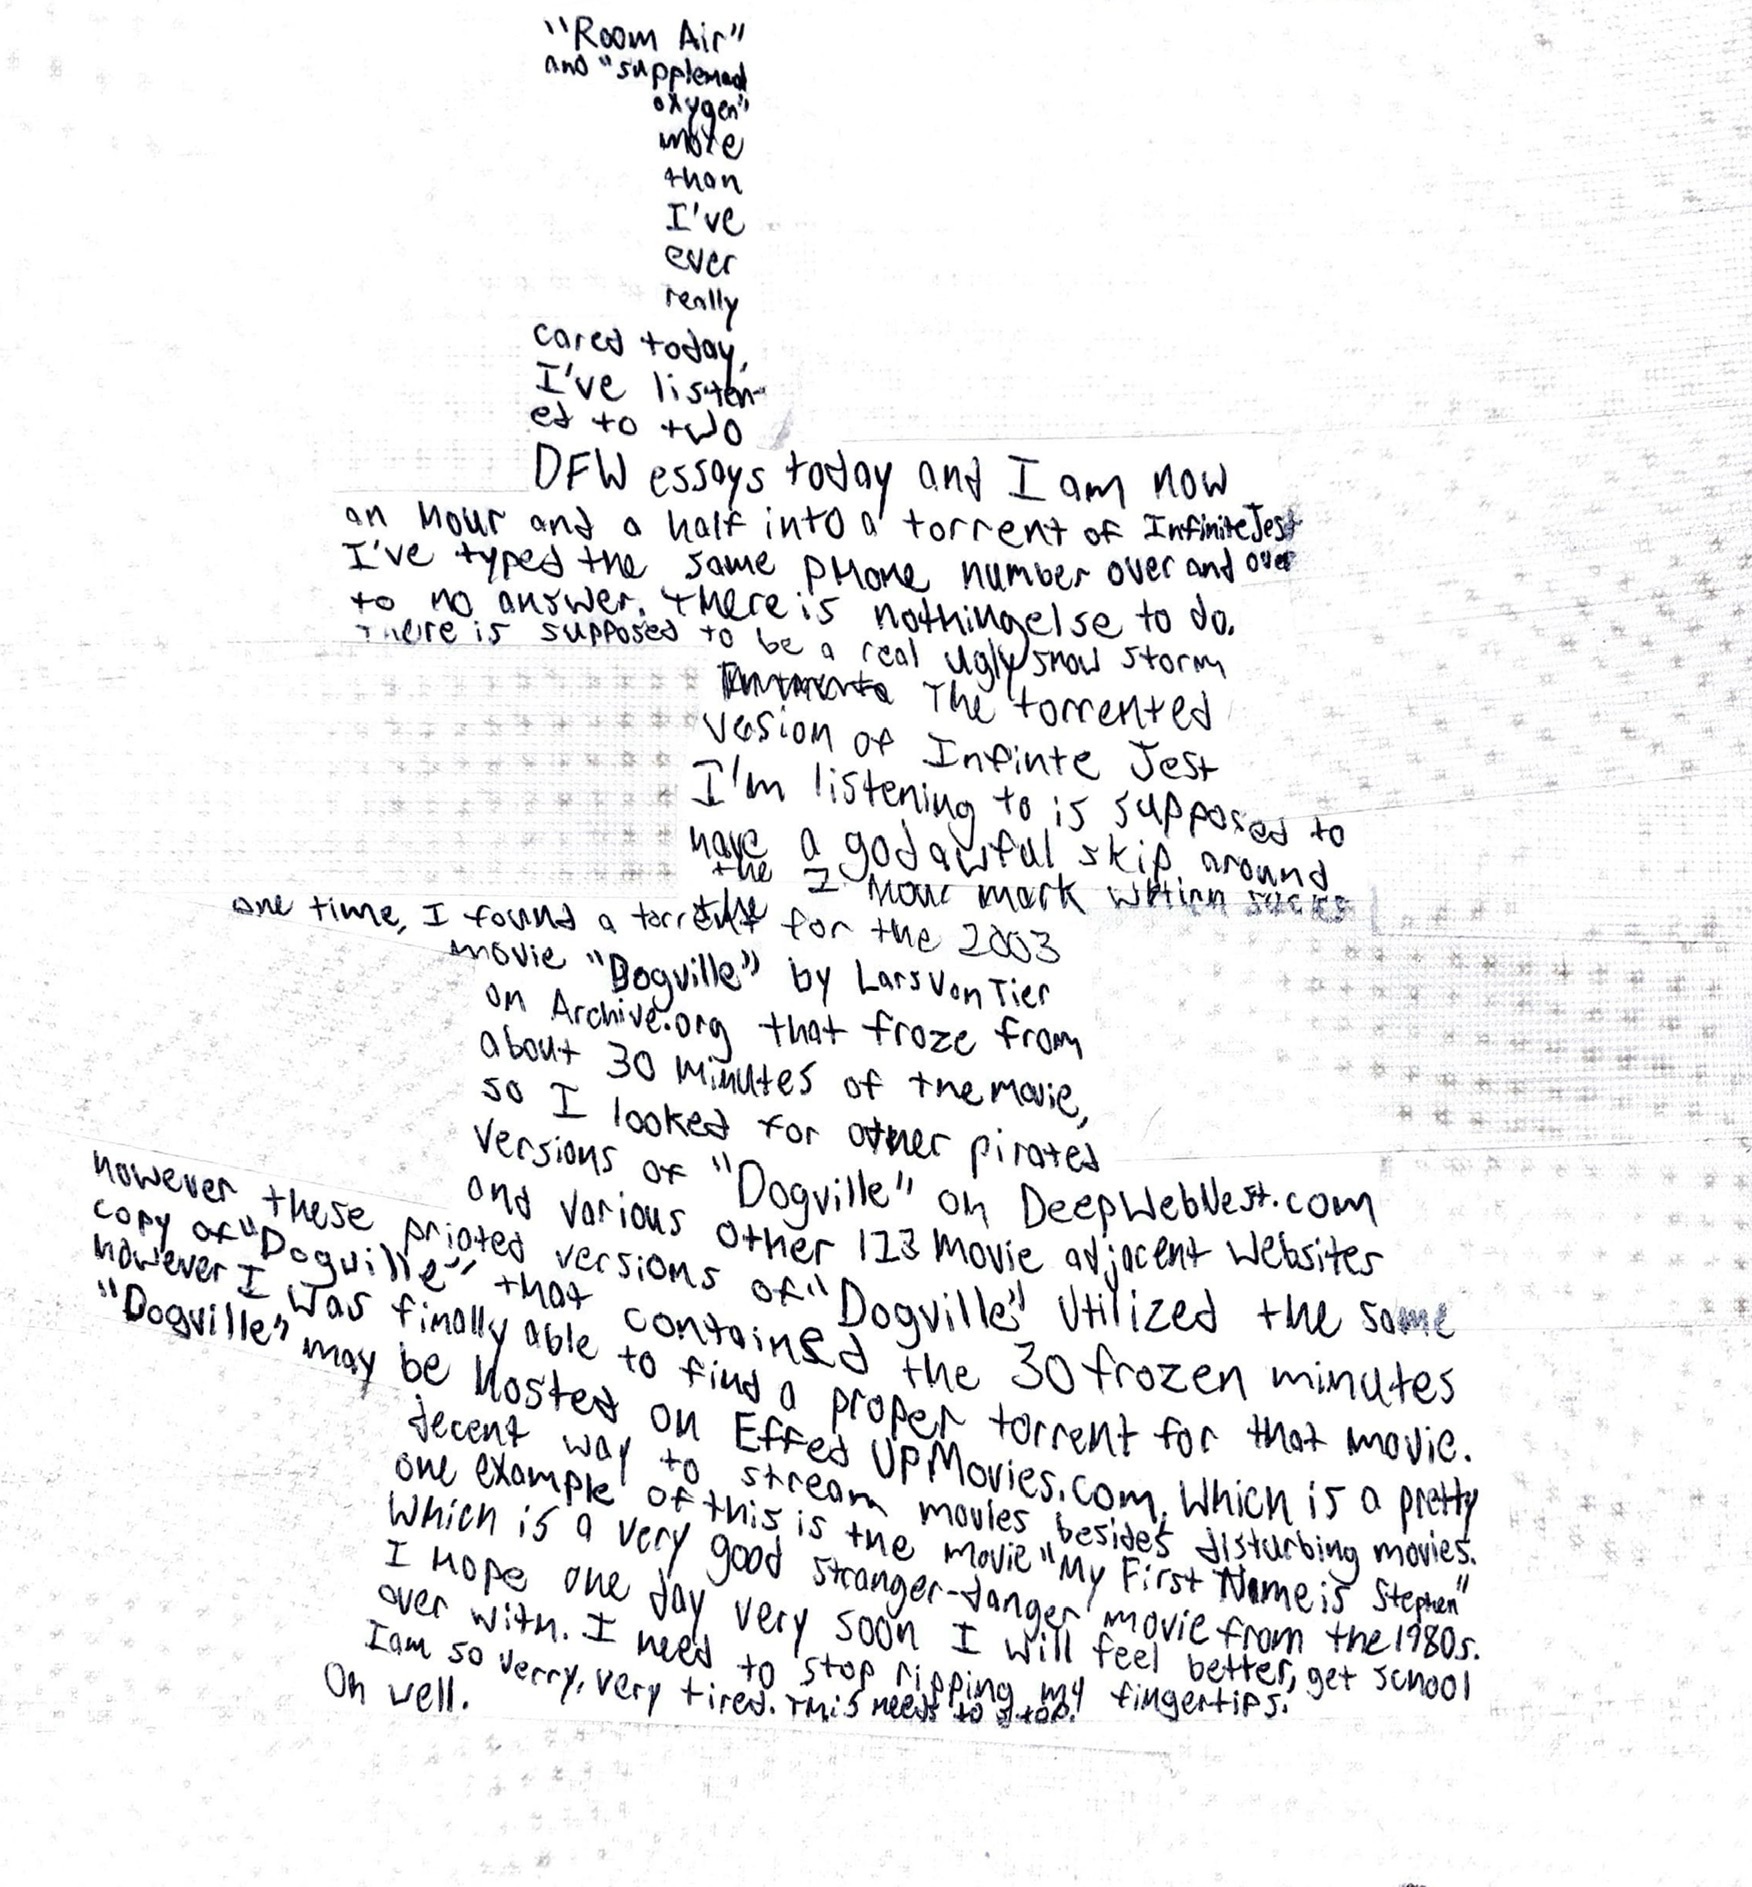 "Room Air"
and "supplemad
oxygen"
more
than
I've
ever
really
cared today,
I've listen-
ed to two
DFW essays today and I am now
an hour and a half into a torrent of Infinite Jest
I've typed the same phone number over and over
to no answer. There is nothing else to do.
There is supposed to be a real ugly snow storm
The torrented
vesion of Infinte Jest
I'm listening to is supposed to
have a god awful skip around
the 2 hour mark sucks
one time, I found a torrent for the 2003
movie "Dogville" by Lars Von Tier
on Archive.org that froze from
about 30 minutes of the movie,
so I looked for other pirated
versions of "Dogville" on DeepWebNest.com
and various other 123 movie adjacent websites
however these priated versions of "Dogville" utilized the same
copy of "Dogville" that contained the 30 frozen minutes
however I was finally able to find a proper torrent for that movie.
"Dogville" may be hosted on Effed UPMovies.com, which is a pretty
decent way to stream movies besides disturbing movies.
one example of this is the movie "My First Name is Stephen"
which is a very good stranger-danger movie from the 1980s.
I hope one day very soon I will feel better, get school
over with. I need to stop ripping my fingertips.
I am so verry, very tired. This needs to stop.
Oh well.